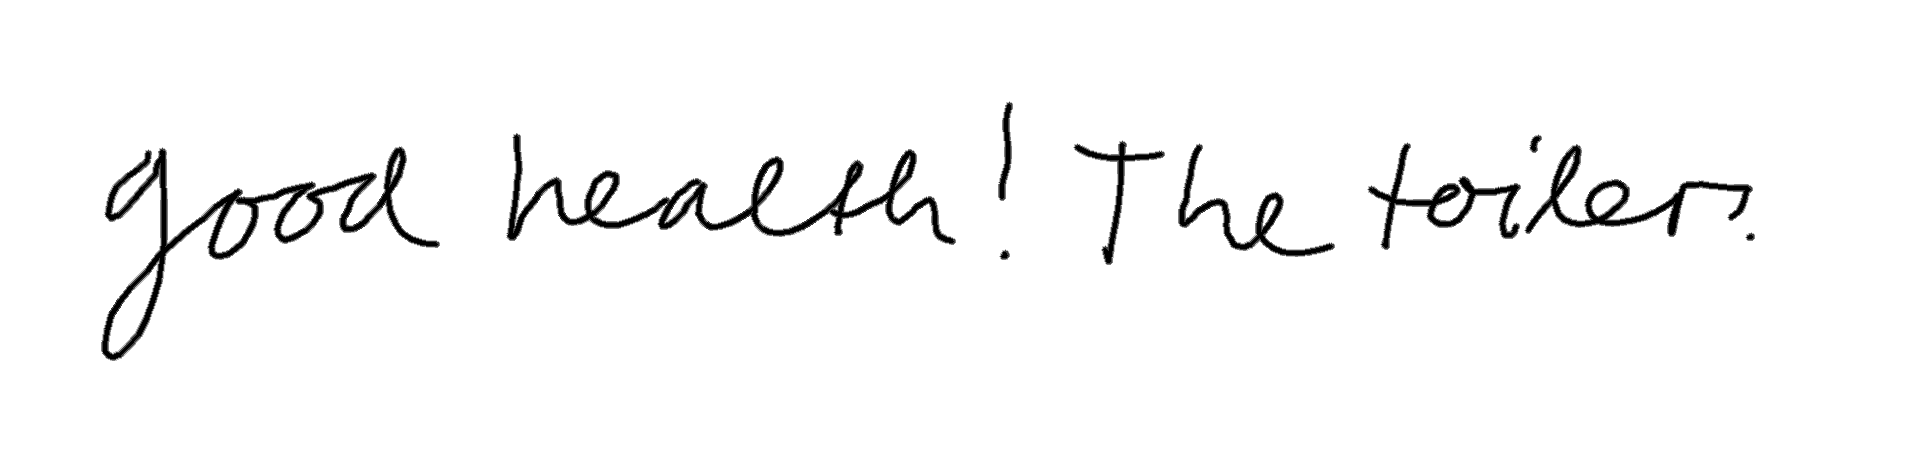 good health! The toilers.